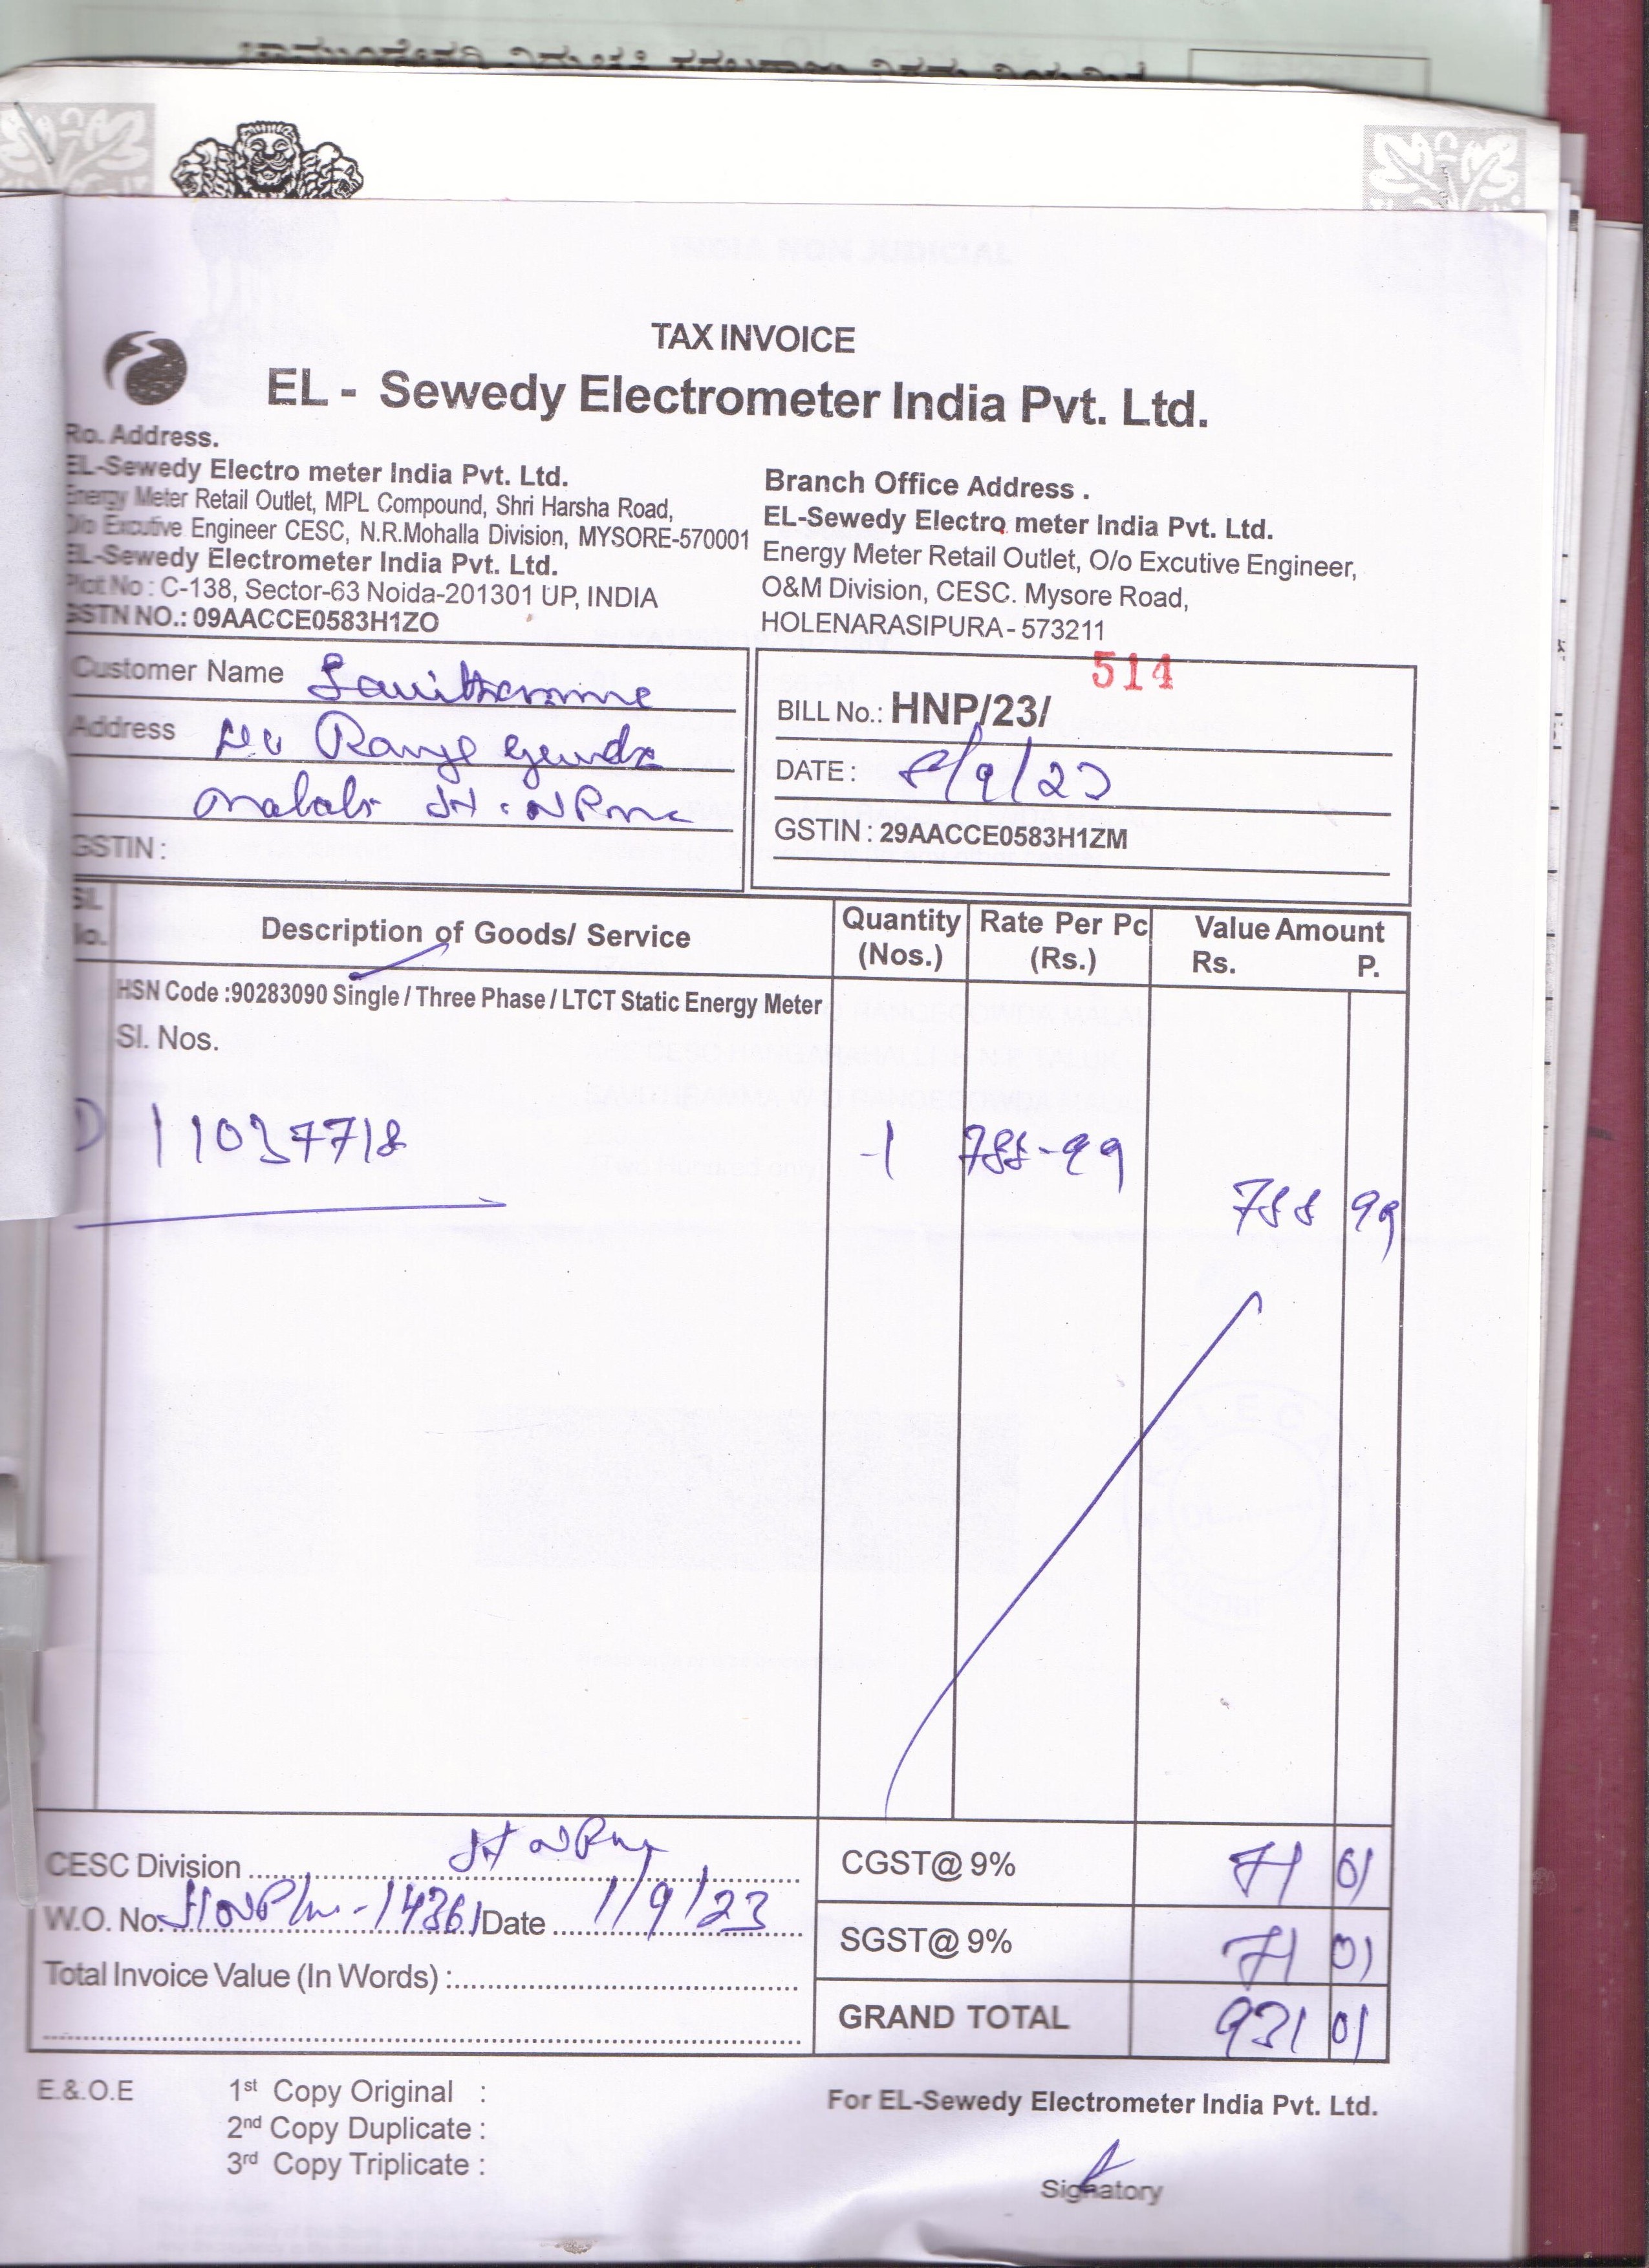 TAX INVOICE
EL - Sewedy Electrometer India Pvt. Ltd.
Ro. Address.
EL-Sewedy Electro meter India Pvt. Ltd.
Energy Meter Retail Outlet, MPL Compound, Shri Harsha Road,
O/o Excutive Engineer CESC, N.R.Mohalla Division, MYSORE-570001
EL-Sewedy Electrometer India Pvt. Ltd.
Plot No : C-138, Sector-63 Noida-201301 UP, INDIA
GSTN NO.: 09AACCE0583H1ZO
Branch Office Address .
EL-Sewedy Electro meter India Pvt. Ltd.
Energy Meter Retail Outlet, O/o Excutive Engineer,
O&M Division, CESC. Mysore Road,
HOLENARASIPURA - 573211
Customer Name
Address
GSTIN :
514
BILL No.: HNP/23/
DATE : /9/23
GSTIN : 29AACCE0583H1ZM
Sl. No. Description of Goods/ Service Quantity (Nos.) Rate Per Pc (Rs.) Value Amount Rs. P.
HSN Code :90283090 Single / Three Phase / LTCT Static Energy Meter
Sl. Nos.
11037718 1 788-99
788 99
CESC Division
W.O. No. Date 1/9/23
Total Invoice Value (In Words) :
CGST@ 9% 71 01
SGST@ 9% 71 01
GRAND TOTAL 931 01
E.&.O.E
1st Copy Original :
2nd Copy Duplicate :
3rd Copy Triplicate :
For EL-Sewedy Electrometer India Pvt. Ltd.
Signatory